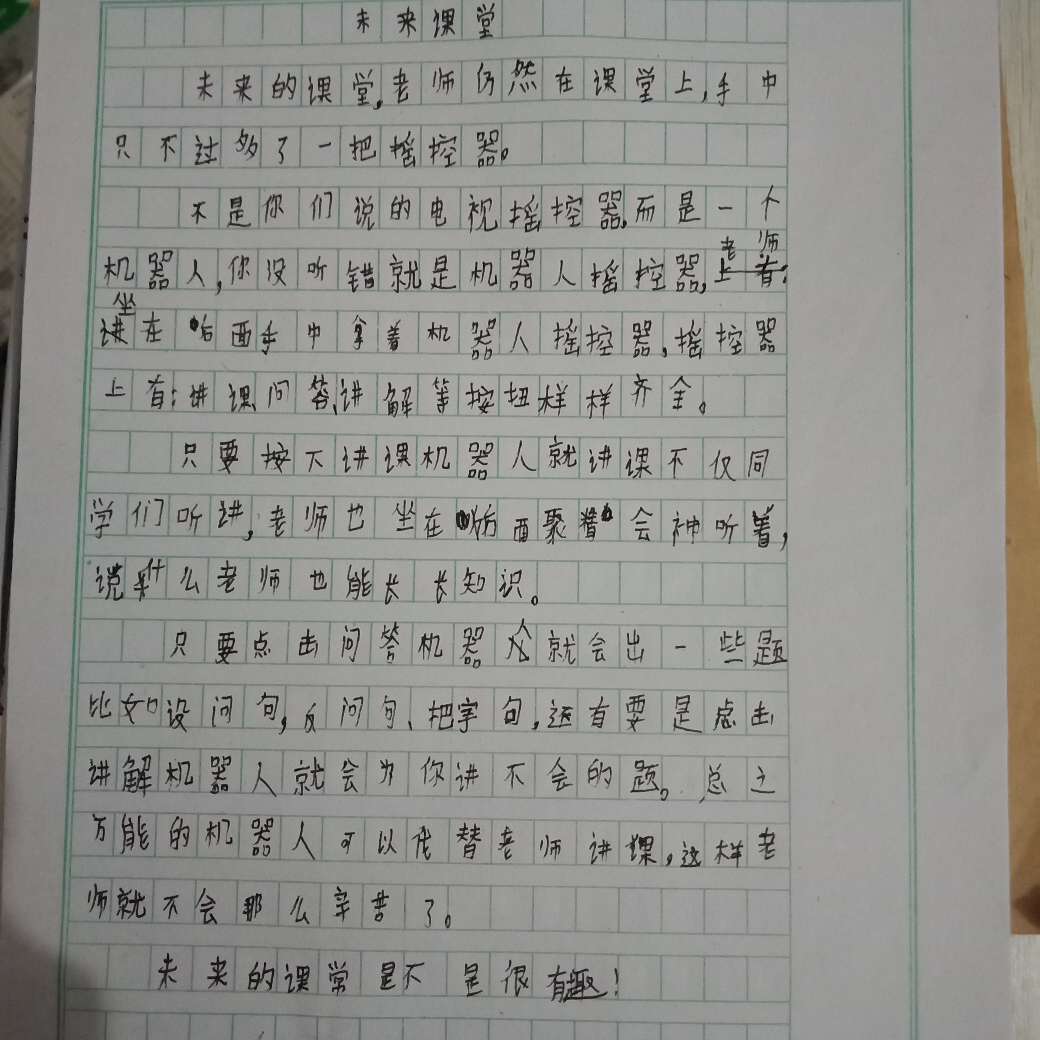 未来课堂
未来的课堂,老师仍然在课堂上,手中
只不过多了一把摇控器。
不是你们说的电视摇控器,而是一个
机器人,你没听错就是机器人摇控器,老师
坐在后面手中拿着机器人摇控器,摇控器
上有:讲课、问答、讲解等按扭样样齐全。
只要按下讲课机器人就讲课不仅同
学们听讲,老师也坐在后面聚精会神听着,
说什么老师也能长长知识。
只要点击问答机器人就会出一些题
比如设问句,反问句、把字句,还有要是点击
讲解机器人就会为你讲不会的题。总之
万能的机器人可以代替老师讲课,这样老
师就不会那么辛苦了。
未来的课堂是不是很有趣!